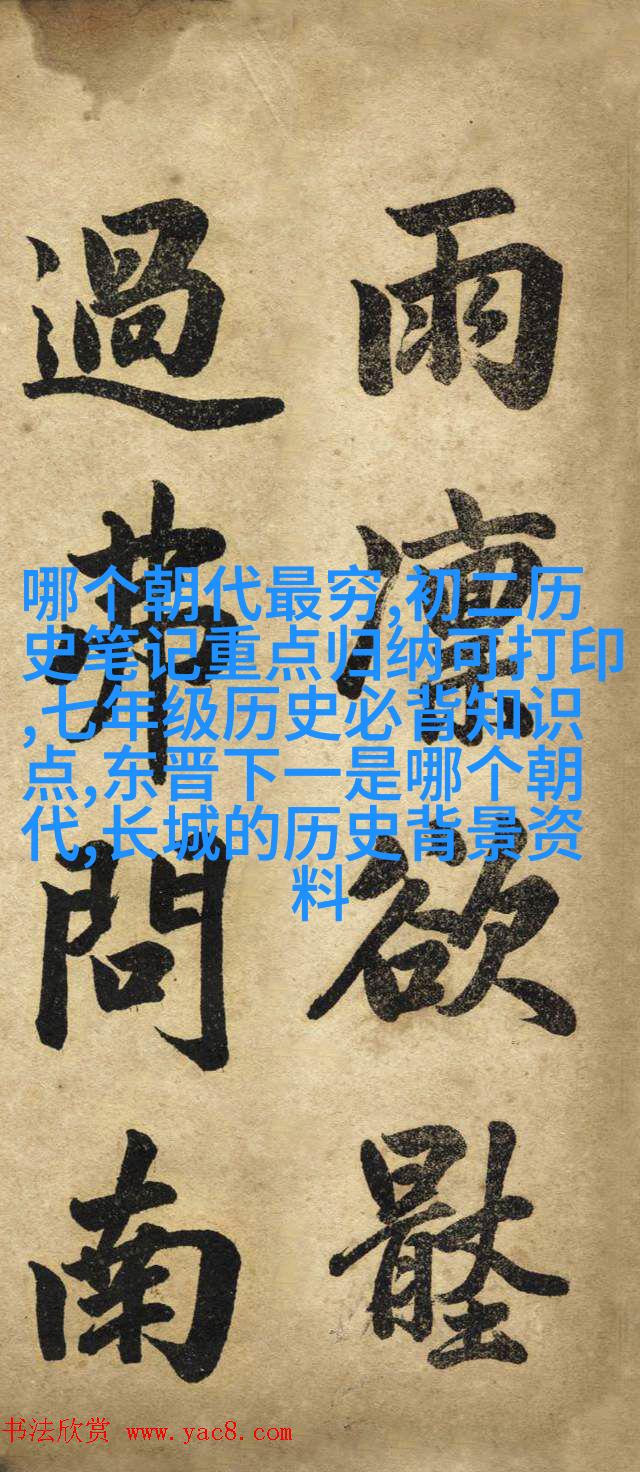 雨欲
過問南
哪个朝代最穷,初二历
史笔记重点归纳可打印
,七年级历史必背知识
点,东晋下一是哪个朝
代,长城的历史背景资
料
书法欣赏 www.yac8.com